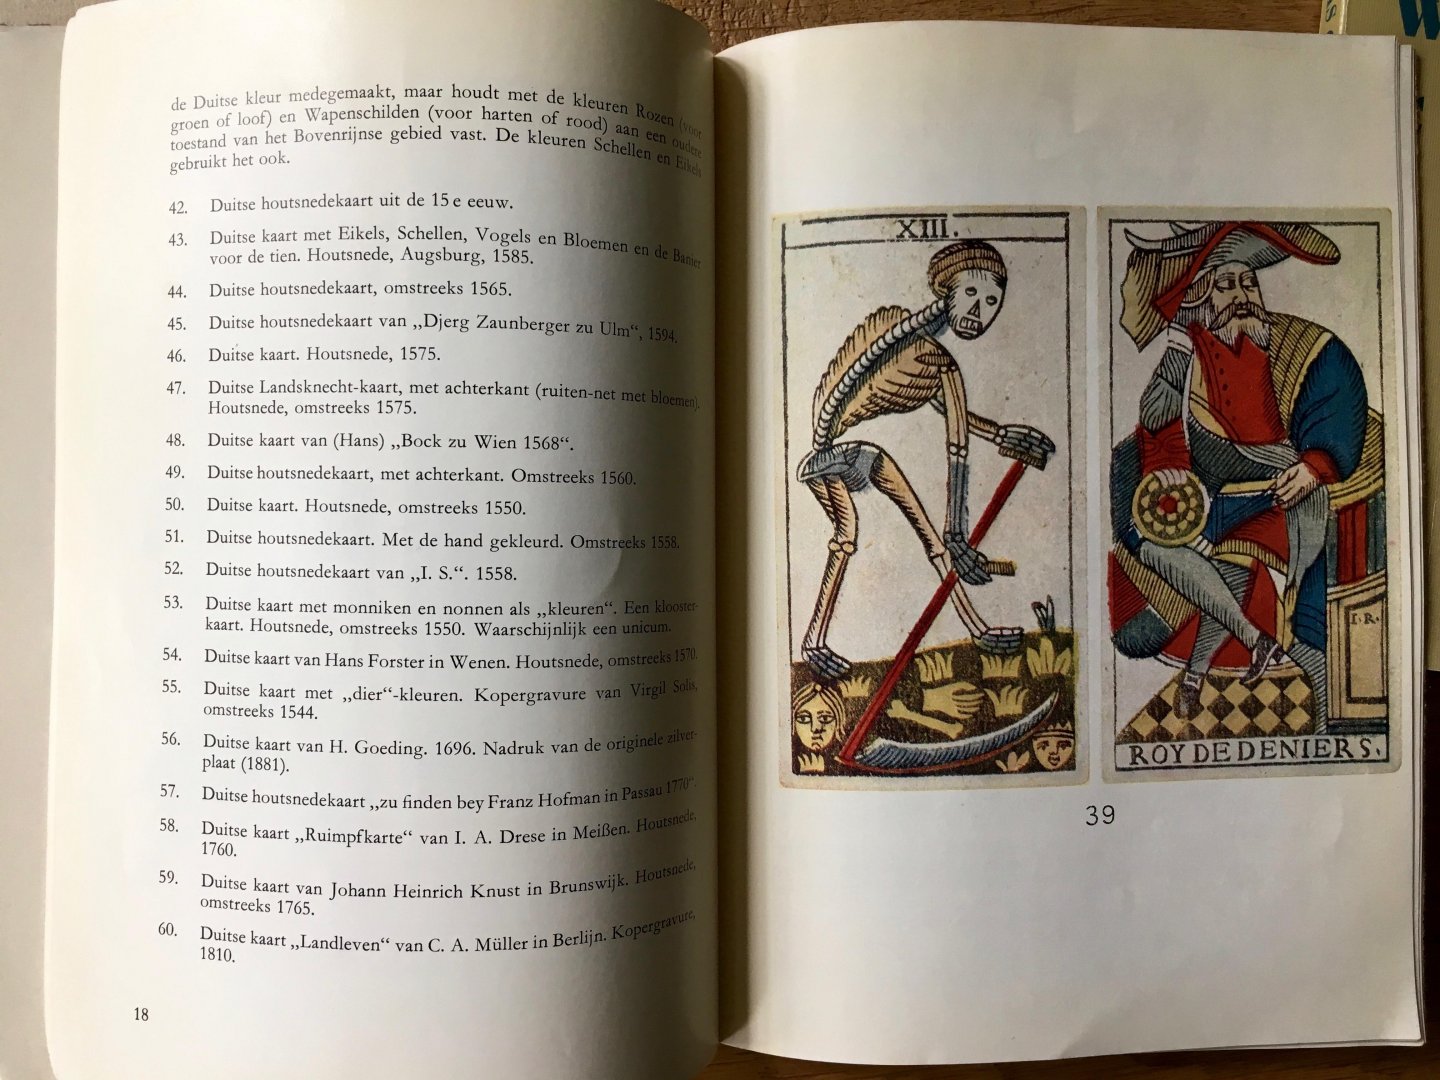 de Duitse kleur medegemaakt, maar houdt met de kleuren Rozen (voor
groen of loof) en Wapenschilden (voor harten of rood) aan een oudere
toestand van het Bovenrijnse gebied vast. De kleuren Schellen en Eikels
gebruikt het ook.
42. Duitse houtsnedekaart uit de 15e eeuw.
43. Duitse kaart met Eikels, Schellen, Vogels en Bloemen en de Banier
voor de tien. Houtsnede, Augsburg, 1585.
44. Duitse houtsnedekaart, omstreeks 1565.
45. Duitse houtsnedekaart van „Djerg Zaunberger zu Ulm“, 1594.
46. Duitse kaart. Houtsnede, 1575.
47. Duitse Landsknecht-kaart, met achterkant (ruiten-net met bloemen).
Houtsnede, omstreeks 1575.
48. Duitse kaart van (Hans) „Bock zu Wien 1568“.
49. Duitse houtsnedekaart, met achterkant. Omstreeks 1560.
50. Duitse kaart. Houtsnede, omstreeks 1550.
51. Duitse houtsnedekaart. Met de hand gekleurd. Omstreeks 1558.
52. Duitse houtsnedekaart van „I. S.“. 1558.
53. Duitse kaart met monniken en nonnen als „kleuren“. Een klooster-
kaart. Houtsnede, omstreeks 1550. Waarschijnlijk een unicum.
54. Duitse kaart van Hans Forster in Wenen. Houtsnede, omstreeks 1570.
55. Duitse kaart met „dier“-kleuren. Kopergravure van Virgil Solis,
omstreeks 1544.
56. Duitse kaart van H. Goeding. 1696. Nadruk van de originele zilver-
plaat (1881).
57. Duitse houtsnedekaart „zu finden bey Franz Hofman in Passau 1770“.
58. Duitse kaart „Ruimpfkarte“ van I. A. Drese in Meißen. Houtsnede,
1760.
59. Duitse kaart van Johann Heinrich Knust in Brunswijk. Houtsnede,
omstreeks 1765.
60. Duitse kaart „Landleven“ van C. A. Müller in Berlijn. Kopergravure,
1810.
18
XIII.
I.R.
ROY DE DENIERS.
39